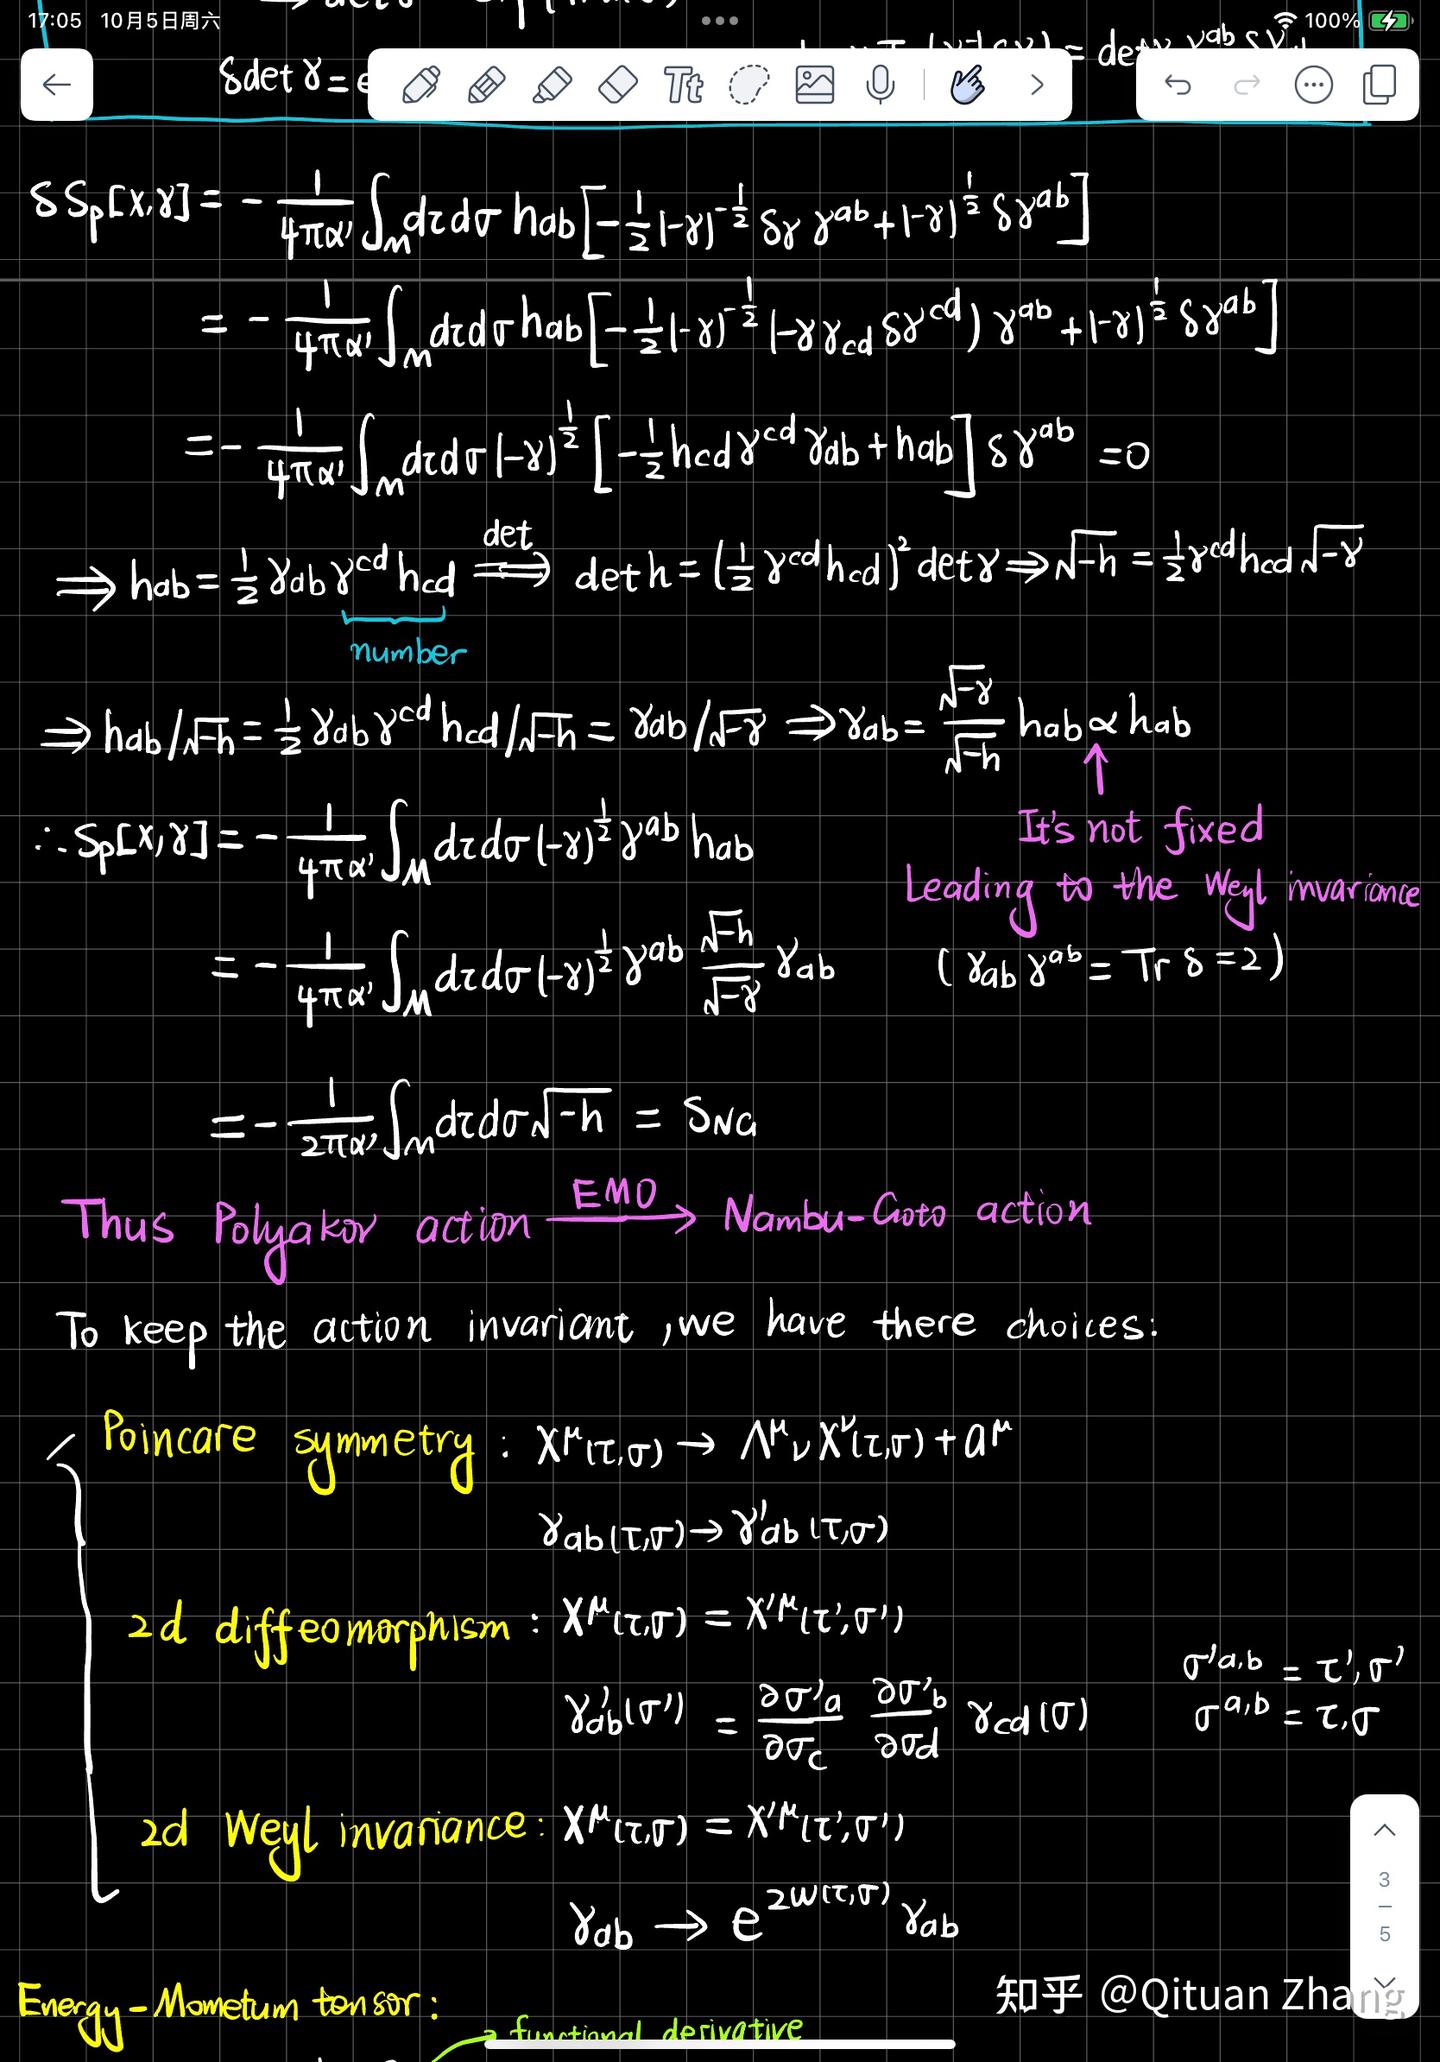 17:05 10月5日周六 100%
δdet γ =
Tt
δSp[X,γ] = - 1/4πα' ∫_M dτdσ hab [ -1/2 (-γ)^{-1/2} δγ γ^{ab} + (-γ)^{1/2} δγ^{ab} ]
= - 1/4πα' ∫_M dτdσ hab [ -1/2 (-γ)^{-1/2} (-γ γ_{cd} δγ^{cd}) γ^{ab} + (-γ)^{1/2} δγ^{ab} ]
= - 1/4πα' ∫_M dτdσ (-γ)^{1/2} [ -1/2 h_{cd} γ^{cd} γ_{ab} + h_{ab} ] δγ^{ab} = 0
⇒ hab = 1/2 γab γ^{cd} hcd ⇒(det) det h = (1/2 γ^{cd} hcd)^2 det γ ⇒ √-h = 1/2 γ^{cd} hcd √-γ
number
⇒ hab/√-h = 1/2 γab γ^{cd} hcd/√-h = γab/√-γ ⇒ γab = √-γ/√-h hab ∝ hab
It's not fixed
Leading to the Weyl invariance
∴ Sp[X,γ] = - 1/4πα' ∫_M dτdσ (-γ)^{1/2} γ^{ab} hab
= - 1/4πα' ∫_M dτdσ (-γ)^{1/2} γ^{ab} √-h/√-γ γab (γab γ^{ab} = Tr δ = 2)
= - 1/2πα' ∫_M dτdσ √-h = SNG
Thus Polyakov action —EMO→ Nambu-Goto action
To keep the action invariant, we have there choices:
Poincare symmetry : X^μ(τ,σ) → Λ^μ_ν X^ν(τ,σ) + a^μ
γab(τ,σ) → γ'ab(τ,σ)
2d diffeomorphism : X^μ(τ,σ) = X'^μ(τ',σ')
γ'ab(σ') = ∂σ'a/∂σc ∂σ'b/∂σd γcd(σ)
σ'^{a,b} = τ',σ'
σ^{a,b} = τ,σ
2d Weyl invariance : X^μ(τ,σ) = X'^μ(τ',σ')
γab → e^{2ω(τ,σ)} γab
3
5
Energy-Mometum tensor :
functional derivative
知乎 @Qituan Zhang